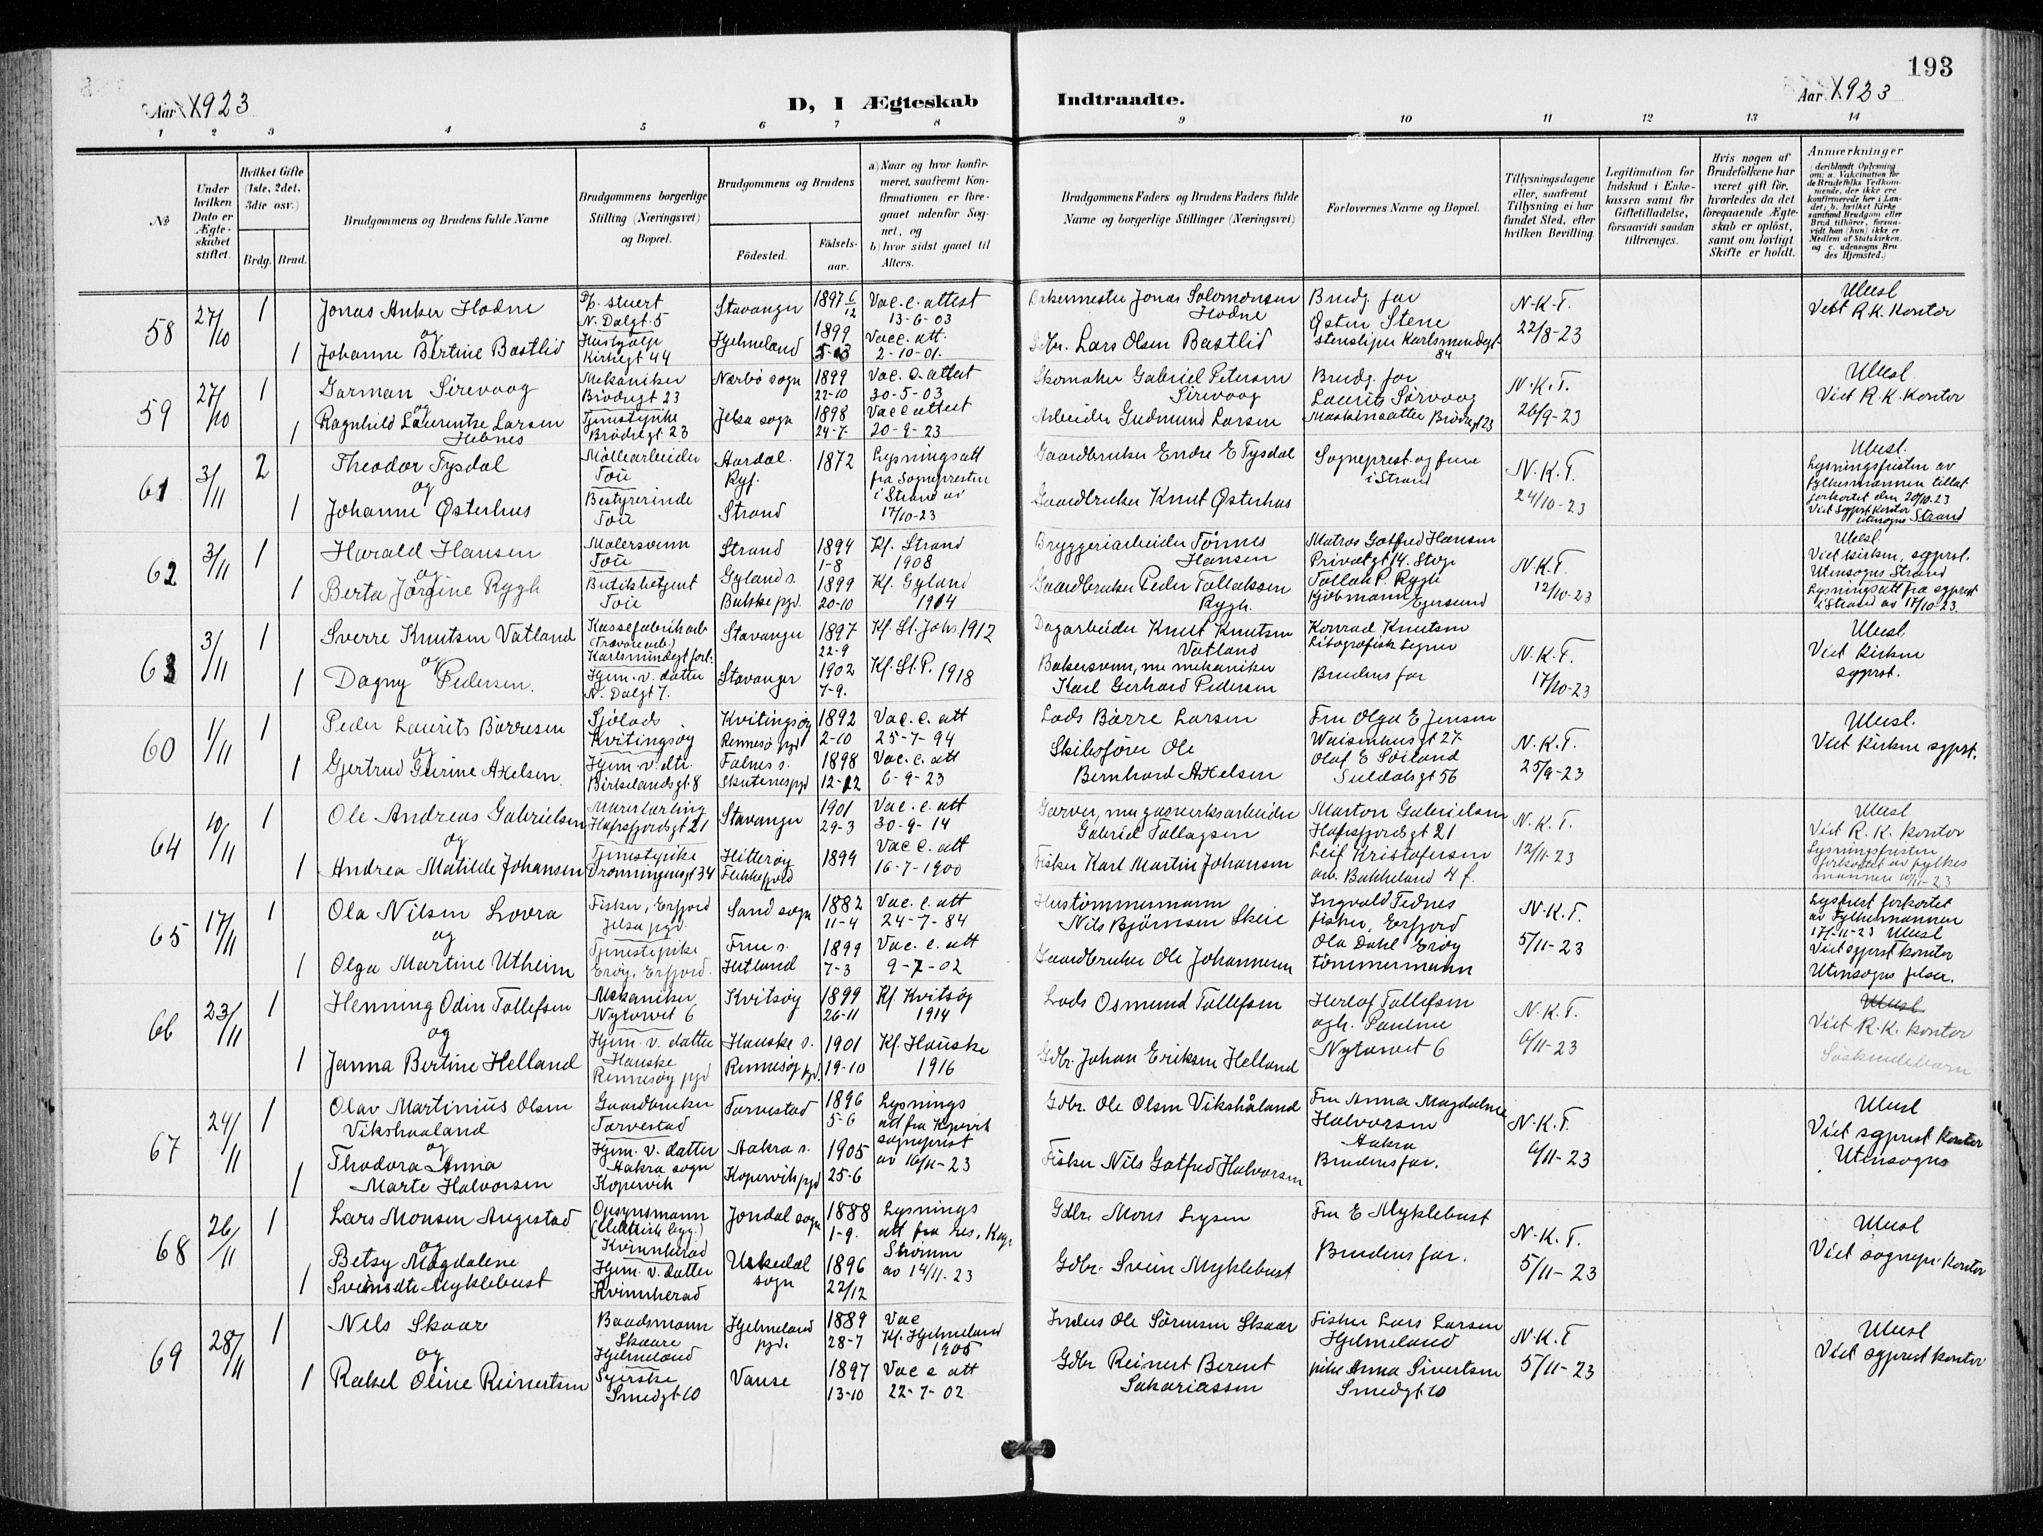 193
Aar 1923
D, I Ægteskab
Indtraadte.
Aar 1923
1 2 3 4 5 6 7 8 9 10 11 12 13 14
No
Under hvilken Dato er Ægteskabet stiftet.
Hvilket Gifte (1ste, 2det, 3die osv.)
Brdg. Brud.
Brudgommens og Brudens fulde Navne
Brudgommens borgerlige Stilling (Næringsvei) og Bopæl.
Brudgommens og Brudens
Fødested.
Fødselsaar.
a) Naar og hvor konfirmeret, saafremt Konfirmationen er foregaaet udenfor Sognet, og
b) hvor sidst gaaet til Alters.
Brudgommens Faders og Brudens Faders fulde Navne og borgerlige Stillinger (Næringsvei)
Forlovernes Navne og Bopæl.
Tillysningsdagene eller, saafremt Tillysning ei har fundet Sted, efter hvilken Bevilling.
Legitimation for Indskud i Enkekassen samt for Giftetilladelse, forsaavidt saadan tiltrænges.
Hvis nogen af Brudefolkene har været gift før, hvorledes da det foregaaende Ægteskab er opløst, samt om lovligt Skifte er holdt.
Anmærkninger
(deriblandt Oplysning om: a. Vakcination for de Brudefolks Vedkommende, der ikke ere konfirmerede her i Landet; b. hvilket Kirkesamfund Brudgom eller Brud tilhører, forsaavidt han (hun) ikke er Medlem af Statskirken, og c. udensogns Brudes Hjemsted.)
58
27/10
1
Jonas Anker Hodne
og
1
Johanne Bertine Bastlid
D/p. stuert
N. Dalgt 5
Kirkegt 44
Stavanger
Hjelmeland
1897 6/12
1899
Vac. e. attest
13-6-03
Vacc. att.
2-10-01.
Bakermester Jonas Salomonsen
Hodne
Gdbr. Lars Olsen Bastlid
Brudg. far
Østen Stene
84
N.K.T.
22/8-23
Ubesl
Viet R.K. kontor
59
27/10
1
Garman Sirevaag
og
1
Ragnhild Laurentse Larsen
Hebnes
Mekaniker
Brødregt 23
Tjenestepike
Brødregt 23
Nærbø sogn
Jelsa sogn
1899
22-10
1898
24-7
Vac. e. attest
30-5-03
Vac e attest
20-9-23
Skomaker Gabriel Petersen
Sirevaag
Arbeider Gudmund Larsen
Brudg. far
Laurits Sørvaag
N.K.T.
26/9-23
Ubesl
Viet R.K. kontor
61
3/11
2
Theodor Tysdal
og
1
Johanne Østerhus
Møllearbeider
Tou
Bestyrerinde
Tou
Aardal
Ryf.
Strand
1872
Lysningsatt
fra Sognepresten
i Strand av
17/10-23
Gaardbruker Endre E Tysdal
Gaardbruker Knut Østerhus
Sogneprest og frue
i Strand
N.K.T.
24/10-23
Ubesl.
Lysningsfristen av
fylkesmannen tillat
forkortet den 20/10-23
Viet Sogprst kontor
utensogns Strand
62
3/11
1
Harald Hansen
og
1
Berta Jørgine Rygh
Malersvenn
Tou
Butikbetjent
Tou
Strand
Gyland s.
Bakke pgd.
1894
1-8
1899
20-10
Kf. Strand
1908
Kf. Gyland
1914
Bryggeriarbeider Tønnes
Hansen
Gaardbruker Peder Tollaksen
Rygh.
Matros Gotfred Hansen
Privatgt 14. Stvgr
Tollak P. Rygh
Kjøbmann Egersund
N.K.T.
12/10-23
Ubesl.
Viet kirken, sogprst.
Utensogns Strand
Lysningsatt fra sogprst
i Strand av 17/10-23.
63
3/11
1
Sverre Knutsen Vatland
og
1
Dagny Pedersen.
Kassefabrikarb
Karlsmindegt forl.
Hjem. v. datter
N. Dalgt 7.
Stavanger
Stavanger
1897
22-9
1902
7-9.
Kf. St. Johs 1912
Kf. St. P. 1918
Dagarbeider Knut Knutsen
Vatland
Bakersvenn, nu mekaniker
Karl Gerhard Pedersen
Konrad Knutsen
Litografisk tegner
Brudens far
N.K.T.
17/10-23
Ubesl
Viet kirken
sogprst.
60
1/11
1
Peder Laurits Børresen
og
1
Gjertrud Gurine Axelsen.
Sjølods
Kvitingsøy
Hjem. v. dtr.
Birkelandsgt 8
Kvitingsøy
Rennesø pgd
Falnes s.
Skutenes pgd
1892
2-10
1898
12-12
Vac. e. att
25-7-94
Vac. e. att
6-9-23
Lods Børre Larsen
Skibsfører Ole
Bernhard Axelsen
Fru Olga E Jensen
Waisenhusgt 27.
Olaf E Søiland
Suldalsgt 56
N.K.T.
25/9-23
Ubesl.
Viet kirken sogprst.
64
10/11
1
Ole Andreas Gabrielsen
og
1
Andrea Matilde Johansen
Murerlærling
Hafrsfjordsgt 21
Tjenestepike
Dronningensgt 34
Stavanger
Hitterøy
Flekkefjord
1901
29-3
1899
Vac. e. att
30-9-14
Vac e. att
16-7-1900
Garver, nu gasverksarbeider
Gabriel Tollagsen
Fisker Karl Martin Johansen
Marton Gabrielsen
Hafrsfjordsgt 21
Leif Kristofersen
arb. Bakkeland 4 f.
N.K.T.
12/11-23
Ubesl
Viet R.K. kontor
Lysningsfristen
forkortet av fylkes
mannen 10/11-23
65
17/11
1
Ola Nilsen Lovra
og
1
Olga Martine Utheim
Fisker, Erfjord
Jelsa pgd.
Tjenestepike
Erøy, Erfjord.
Sand sogn
Frue s.
Hetland
1882
11-4
1899
7-3
Vac. e. att
24-7-84
Vac. e. att
9-7-02
Hustømmermann
Nils Bjørnsen Skeie
Gaardbruker Ole Johannesen
Ingvald Tednes
fisker, Erfjord
Ola Dahl Erøy
tømmermann
N.K.T.
5/11-23
Lysfrist forkortet
av Fylkesmannen
17/11-23 Ubesl
Viet sogprst kontor
Utensogns Jelsa.
66
23/11
1
Henning Odin Tollefsen
og
1
Janna Bertine Helland
Mekaniker
Nytorvet 6
Hjem. v. datter
Hauske
Rennesøy pgd
Kvitsøy
Hauske s.
Rennesøy pgd.
1899
26-11
1901
19-10
Kf. Kvitsøy
1914
Kf. Hauske
1916
Lods Osmund Tollefsen
Gdbr. Johan Eriksen Helland
Herlof Tollefsen
og h. Pauline
Nytorvet 6
N.K.T.
6/11-23
Ubesl
Viet R.K. kontor
Søskendebarn
67
24/11
1
Olav Martinius Olsen
Vikshaaland
og
1
Thodora Anna
Marte Halvorsen
Gaardbruker
Torvestad
Hjem. v. datter
Aakra sogn
Kopervik
Torvestad
Aakra s.
Kopervik pgd
1896
5-6
1905
25-6
Lysnings
att fra Kopervik
sogneprest
av 16/11-23
Gdbr. Ole Olsen Vikshåland
Fisker Nils Gotfred Halvorsen
Fru Anna Magdalene
Halvorsen
Aakra
Brudens far.
N.K.T.
6/11-23
Ubesl
Viet sogprst kontor
Utensogns
68
26/11
1
Lars Monsen Augestad
og
Betsy Magdalene
1
Sveinsdtr Myklebust
Opsynsmann
(elektrisk byg.)
Kvinnherad
Hjem. v. datter
Kvinnherad
Jondal sogn
Uskedal
sogn
1888
1-9.
1896
22/12
Lysnings
att fra res. Kap.
Strømm
av 14/11-23
Gdbr. Mons Lysen
Gdbr. Svein Myklebust
Fru E Myklebust
Brudens far.
N.K.T.
5/11-23
Ubesl
Viet sognepr. kontor
69
28/11
1
Nils Skaar
og
1
Rakel Oline Reinertsen
Baadsmann
Skaare
Hjelmeland
Syerske
Smedgt 10
Hjelmeland
pgd.
Vanse
1889
28-7
1897
13-10
Vac
Kf. Hjelmeland
1905
Vac e att
22-7-02
Inders Ole Sørensen Skaar
Gdbr Reinert Berent
Sakariassen
Fisker Lars Larsen
Hjelmeland
pike Anna Sivertsen
Smedgt 10
N.K.T
5/11-23
Ubesl
Viet sogprst kontor